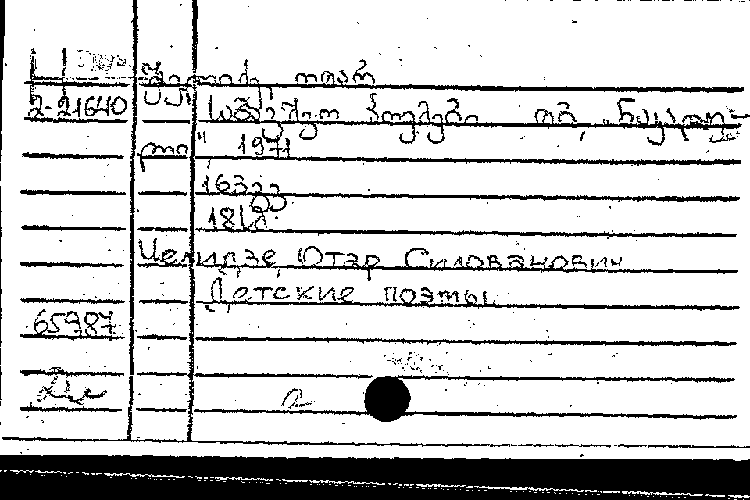 ჭელიძე, ოთარ
2-21640 საბავშვო პოემები თბ, „ნაკადუ-
ლი" 1971
163 გვ
18IX
Челидзе, Отар Силованович
Детские поэты
65987